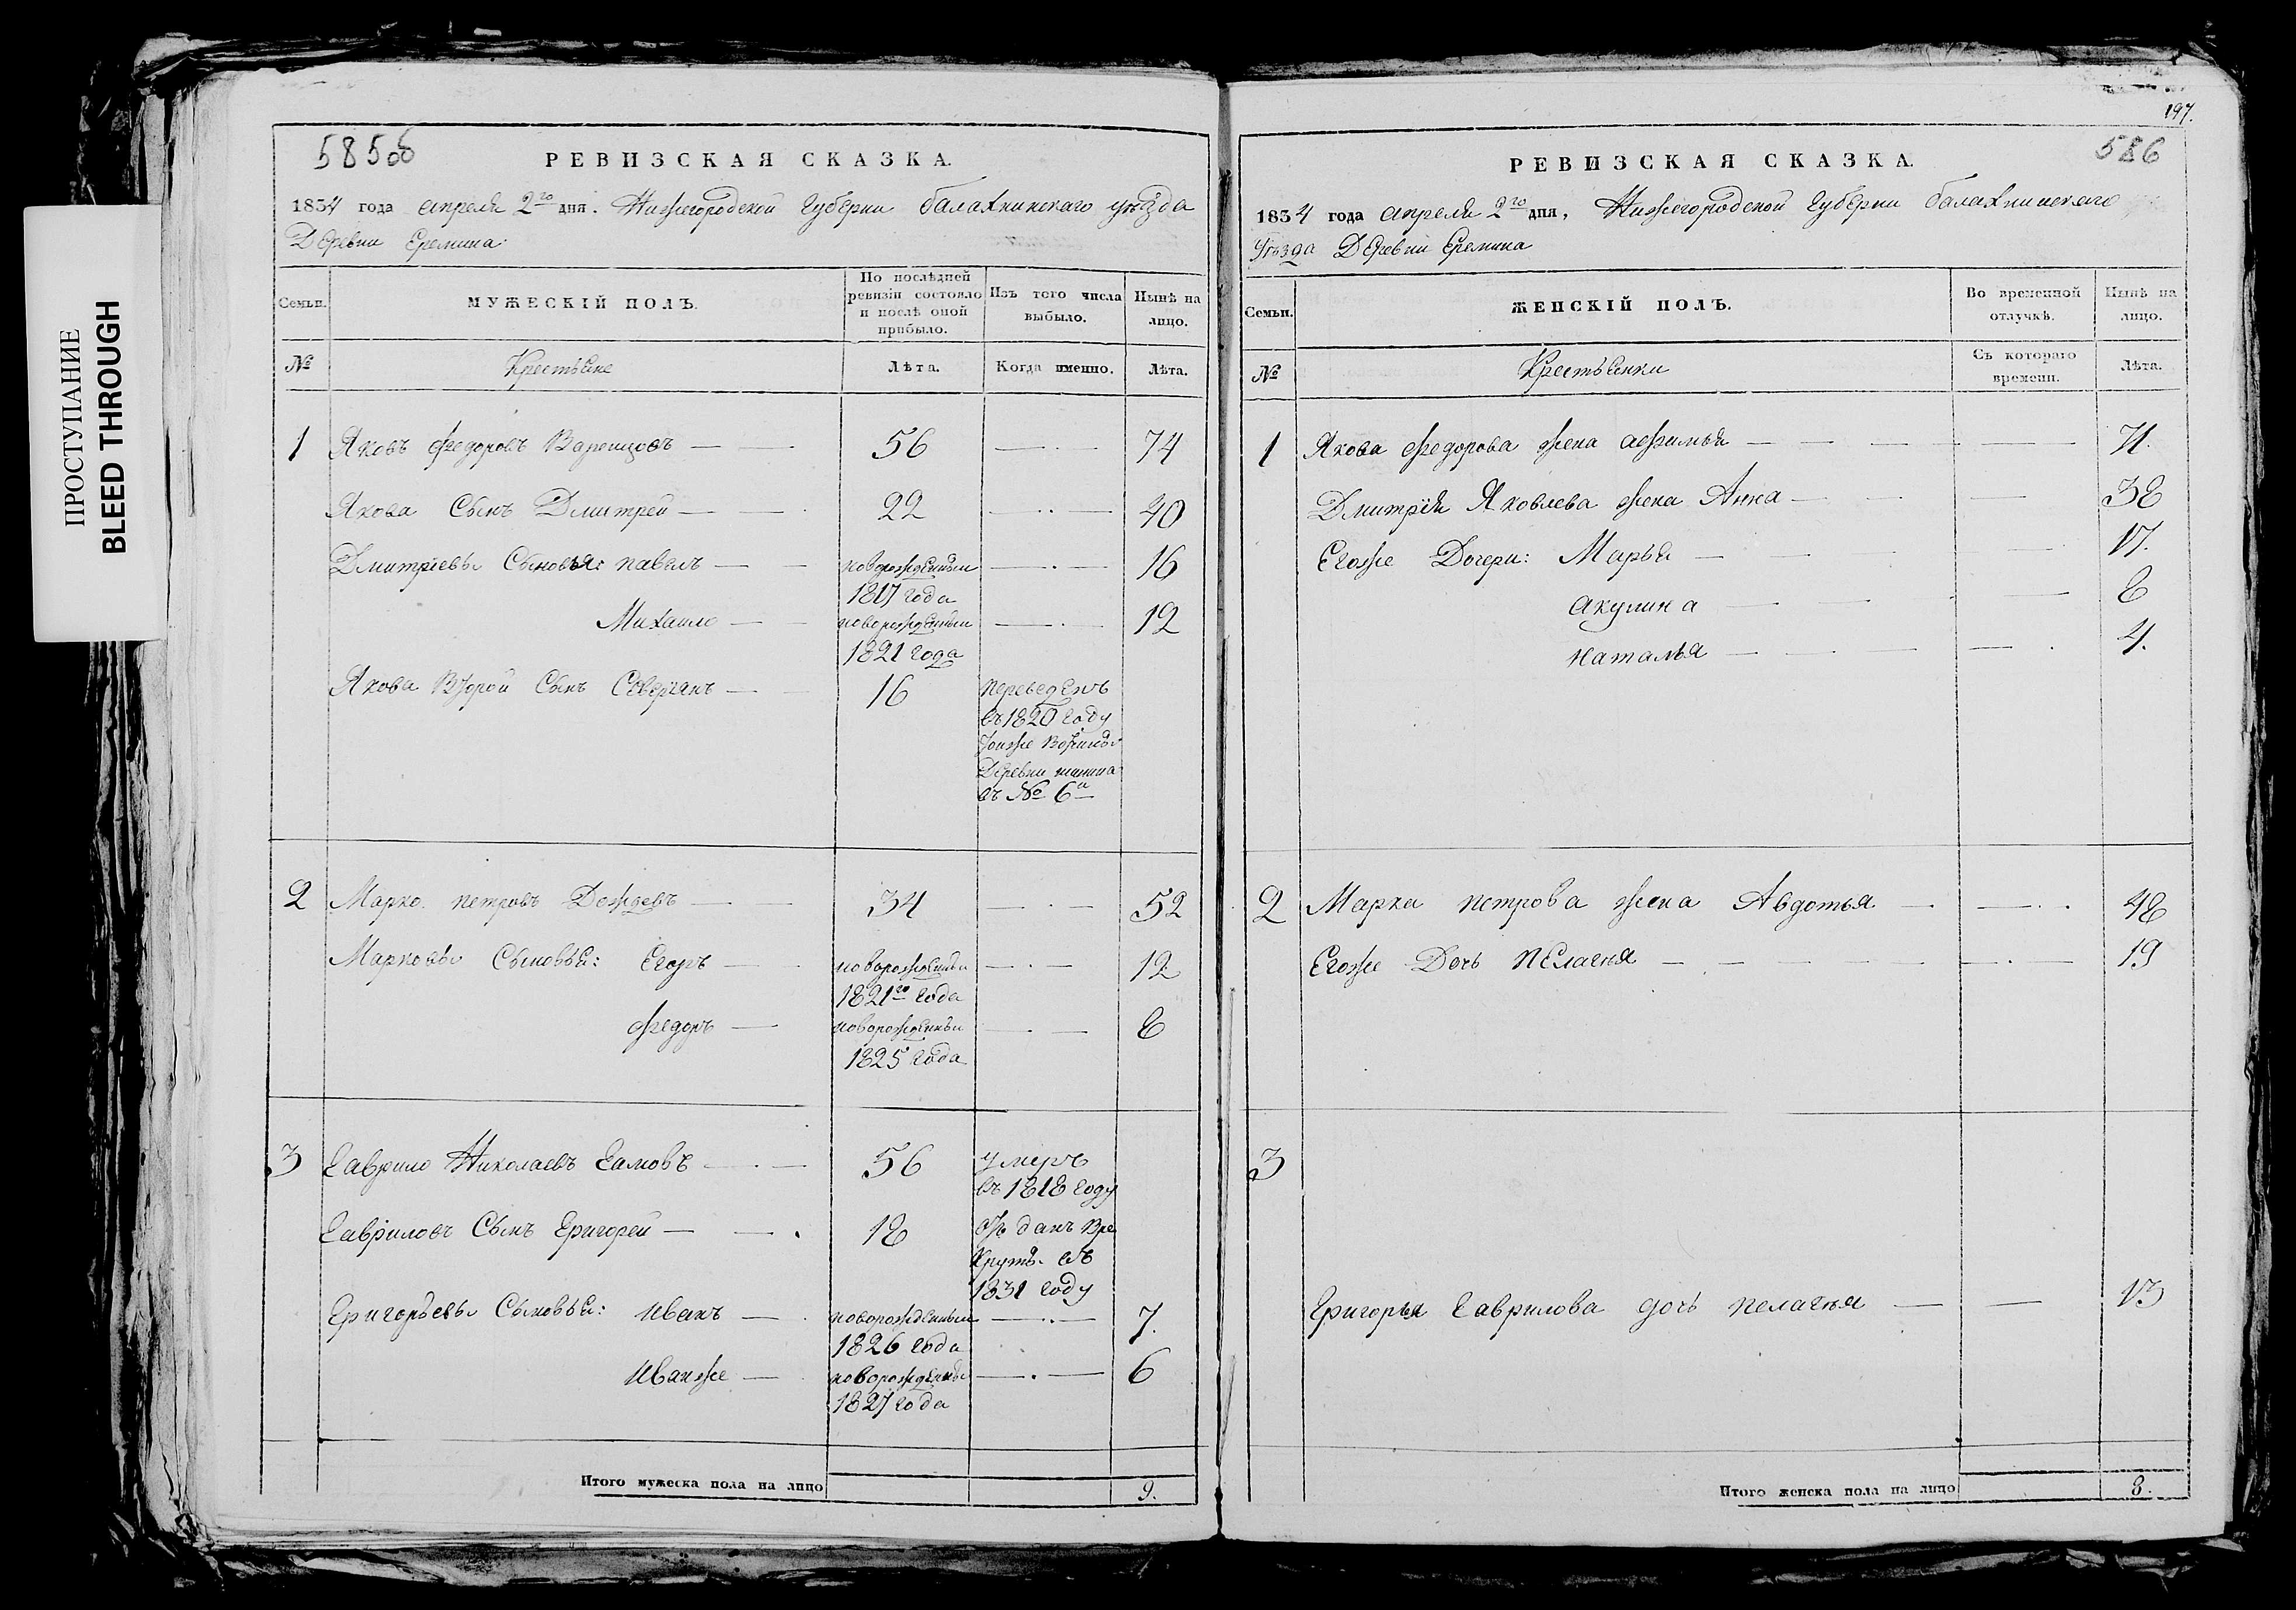 ПРОСТУПАНИЕ
BLEED THROUGH
585об
РЕВИЗСКАЯ СКАЗКА.
1834 года апреля 2го дня. Нижегородской Губернии балахнинскаго уѣзда
Деревни Еремина.
Семьи. МУЖЕСКІЙ ПОЛЪ. По послѣдней ревизіи состояло и послѣ оной прибыло. Изъ того числа выбыло. Нынѣ на лицо.
№ Крестьяне Лѣта. Когда именно. Лѣта.
1 Яковъ Федоровъ Варенцовъ — — 56 — 74
Якова Сынъ Дмитрей — — 22 — 40
Дмитріевы Сыновья: павелъ — — новорожденный — 16
1817 года
Михаило — — новорожденный — 12
1821 года
Якова Второй Сынъ Северьянъ — 16 переведенъ
въ 1820 году
тоиже Вотчины
Деревни
въ № 6й
2 Марко петровъ Дождевъ — — 34 — 52
Марковы Сыновья: Егоръ — новорожденный — 12
1821го года
Федоръ — новорожденный — 8
1825 года
3 Гаврило Николаевъ Гамовъ — — 56 умеръ
въ 1818 году
Гавриловъ Сынъ Григорей — — 18 отданъ Вре
круты. въ
1831 году
Григорьевы Сыновья: иванъ — новорожденный — 7.
1826 года
иванже — новорожденный — 6
1827 года
Итого мужеска пола на лицо 9.
197.
586
РЕВИЗСКАЯ СКАЗКА.
1834 года апреля 2го дня, Нижегородской Губернии балахнинскаго
Уѣзда Деревни Еремина
Семьи. ЖЕНСКІЙ ПОЛЪ. Во временной отлучкѣ. Нынѣ на лицо.
№ Крестьянки Съ котораго времени. Лѣта.
1 Якова Федорова жена афимья — — 71.
Дмитрія Яковлева жена Анна — — 38
Егоже Дочери: Марья — — 17.
акулина — — 8
наталья — — 4.
2 Марка петрова жена Авдотья — — 48
Егоже Дочь пелагея — — 19
3
Григорья Гаврилова дочь пелагея — — 13
Итого женска пола на лицо 8.